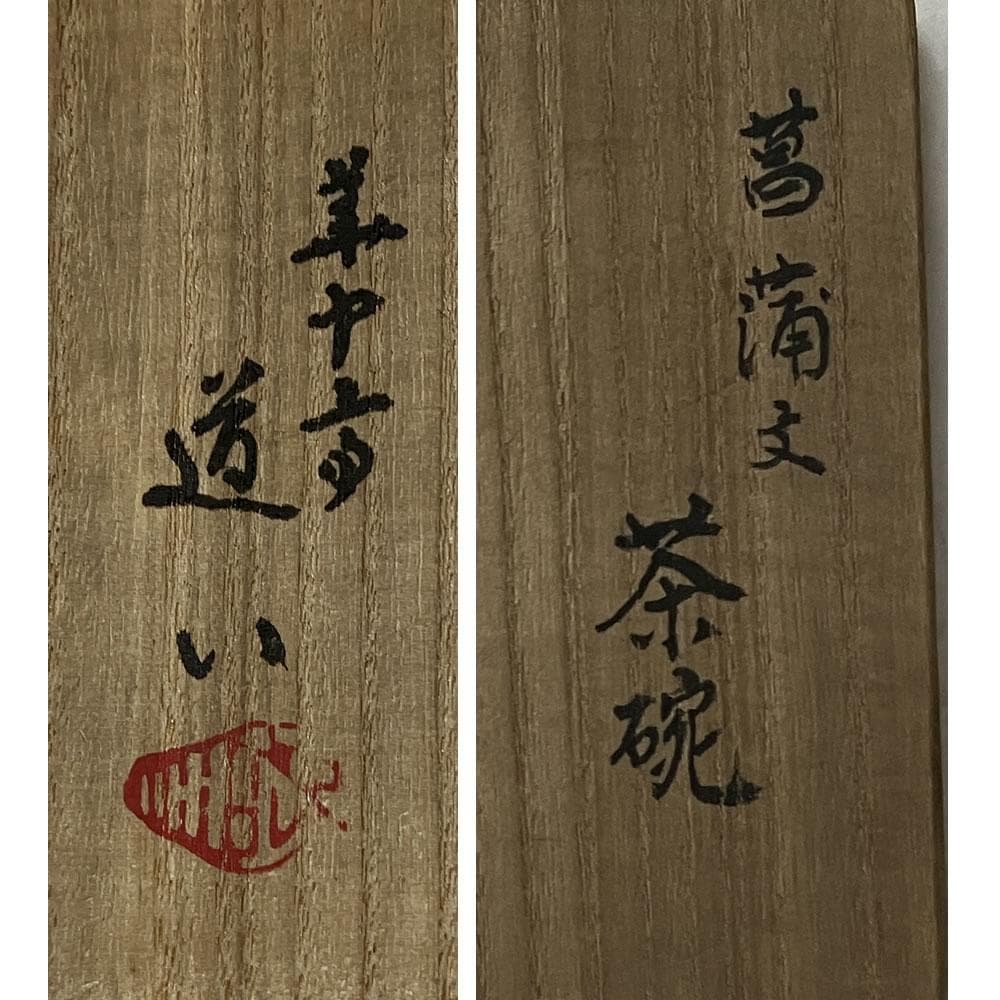 菖蒲文
茶碗
華中亭
道八